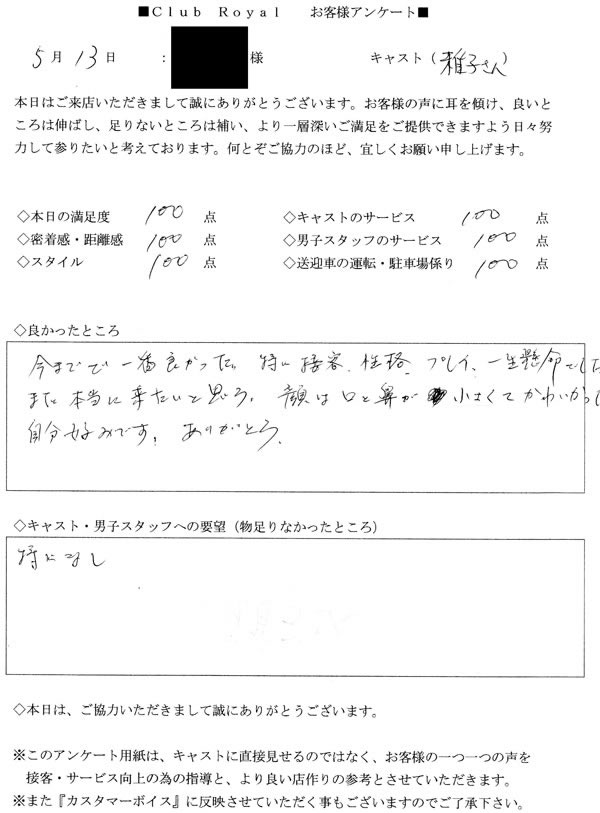 ■Ｃｌｕｂ Ｒｏｙａｌ　お客様アンケート■
5月 13日 : 様 キャスト（雅子さん）
本日はご来店いただきまして誠にありがとうございます。お客様の声に耳を傾け、良いと
ころは伸ばし、足りないところは補い、より一層深いご満足をご提供できますよう日々努
力して参りたいと考えております。何とぞご協力のほど、宜しくお願い申し上げます。
◇本日の満足度 100 点 ◇キャストのサービス 100 点
◇密着感・距離感 100 点 ◇男子スタッフのサービス 100 点
◇スタイル 100 点 ◇送迎車の運転・駐車場係り 100 点
◇良かったところ
今までで一番良かった。特に接客、性格、プレイ、一生懸命でした
また本当に来たいと思う。顔は口と鼻が小さくてかわいかっ
自分好みです。ありがとう。
◇キャスト・男子スタッフへの要望（物足りなかったところ）
特になし
◇本日は、ご協力いただきまして誠にありがとうございます。
※このアンケート用紙は、キャストに直接見せるのではなく、お客様の一つ一つの声を
接客・サービス向上の為の指導と、より良い店作りの参考とさせていただきます。
※また『カスタマーボイス』に反映させていただく事もございますのでご了承下さい。